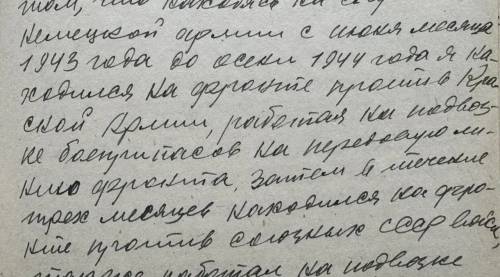 том, что находясь на
немецкой армии с июня месяца
1943 года до осени 1944 года я на-
ходился на фронте против Кра-
ской Армии, работая на подвоз-
ке боеприпасов на передовую ли-
нию фронта, затем в течение
трех месяцев находился на фро-
нте против союзных СССР войск
также работал на подвозке